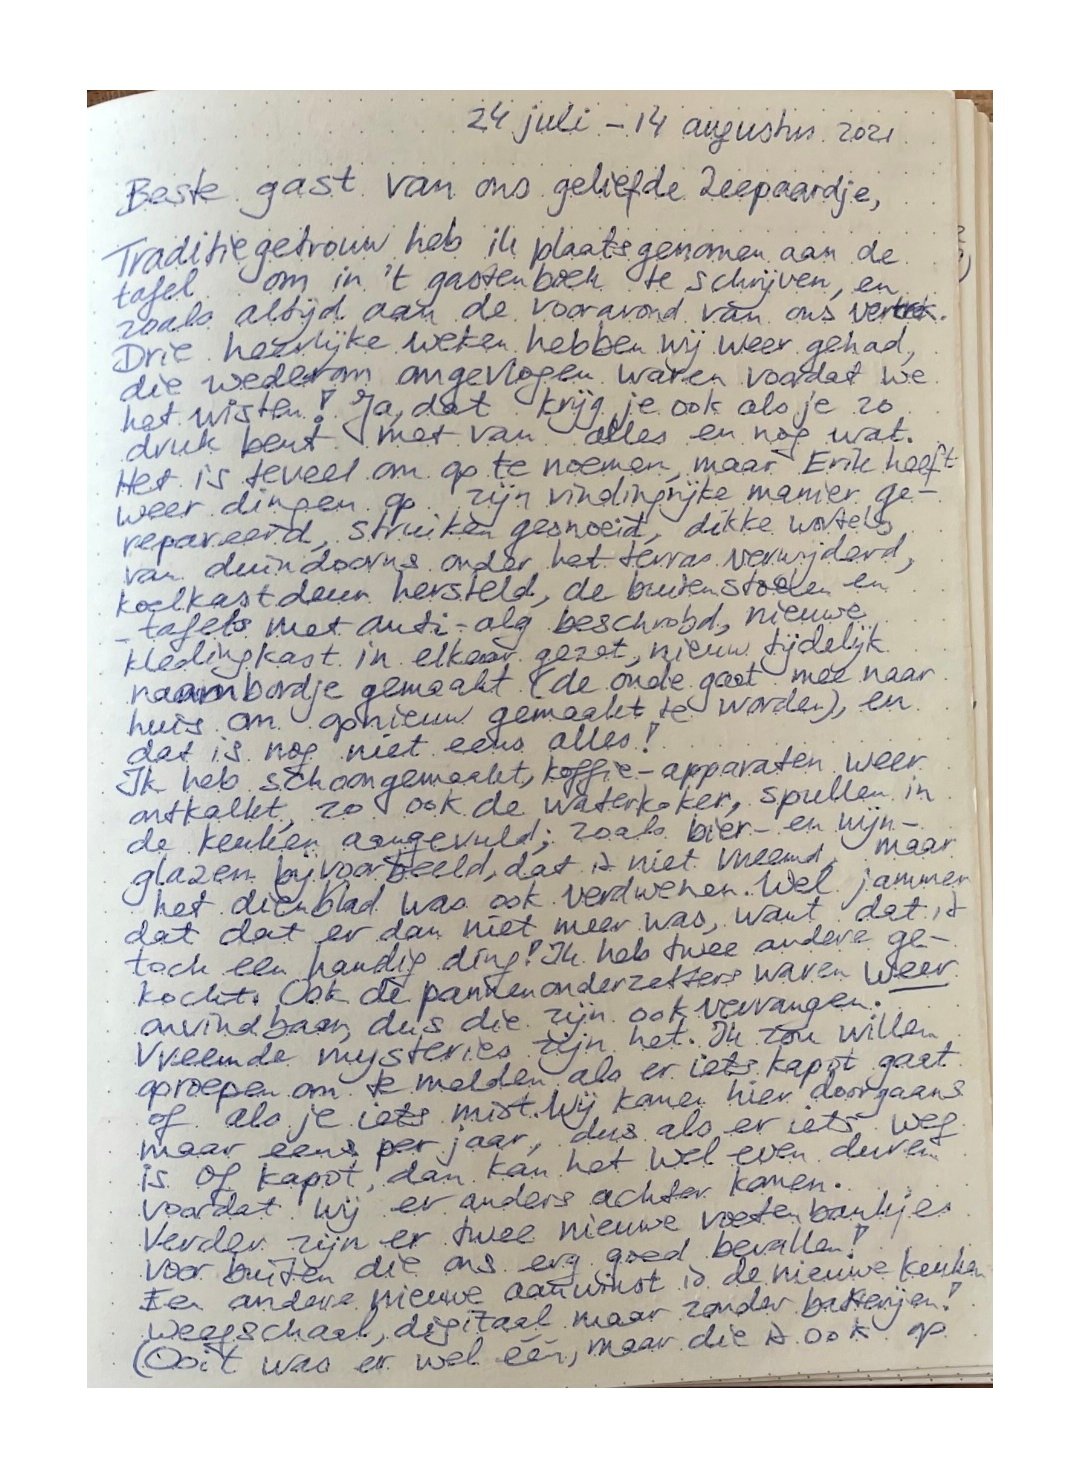 24 juli - 14 augustus 2021
Beste gast van ons geliefde Zeepaardje,
Traditiegetrouw heb ik plaatsgenomen aan de
tafel om in 't gastenboek te schrijven, en
zoals altijd aan de vooravond van ons vertrek.
Drie heerlijke weken hebben wij weer gehad,
die wederom omgevlogen waren voordat we
het wisten! Ja, dat krijg je ook als je zo
druk bent met van alles en nog wat.
Het is teveel om op te noemen, maar Erik heeft
weer dingen op zijn vindingrijke manier ge-
repareerd, struiken gesnoeid, dikke wortels
van duindoorns onder het terras verwijderd,
koelkastdeur hersteld, de buitenstoelen en
-tafels met anti-alg beschrobd, nieuwe
kledingkast in elkaar gezet, nieuw tijdelijk
naambordje gemaakt (de oude gaat mee naar
huis om opnieuw gemaakt te worden), en
dat is nog niet eens alles!
Ik heb schoongemaakt, koffie-apparaten weer
ontkalkt, zo ook de waterkoker, spullen in
de keuken aangevuld; zoals bier- en wijn-
glazen bijvoorbeeld, dat is niet vreemd, maar
het dienblad was ook verdwenen. Wel jammer
dat dat er dan niet meer was, want dat is
toch een handig ding! Ik heb twee andere ge-
kocht. Ook de pannenonderzetters waren weer
onvindbaar, dus die zijn ook vervangen.
Vreemde mysteries zijn het. Ik zou willen
oproepen om te melden als er iets kapot gaat
of als je iets mist. Wij komen hier doorgaans
maar eens per jaar, dus als er iets weg
is of kapot, dan kan het wel even duren
voordat wij er anders achter komen.
Verder zijn er twee nieuwe voetenbankjes
voor buiten die ons erg goed bevallen!
Een andere nieuwe aanwinst is de nieuwe keuken
weegschaal, digitaal maar zonder batterijen!
(Ooit was er wel één, maar die is ook op